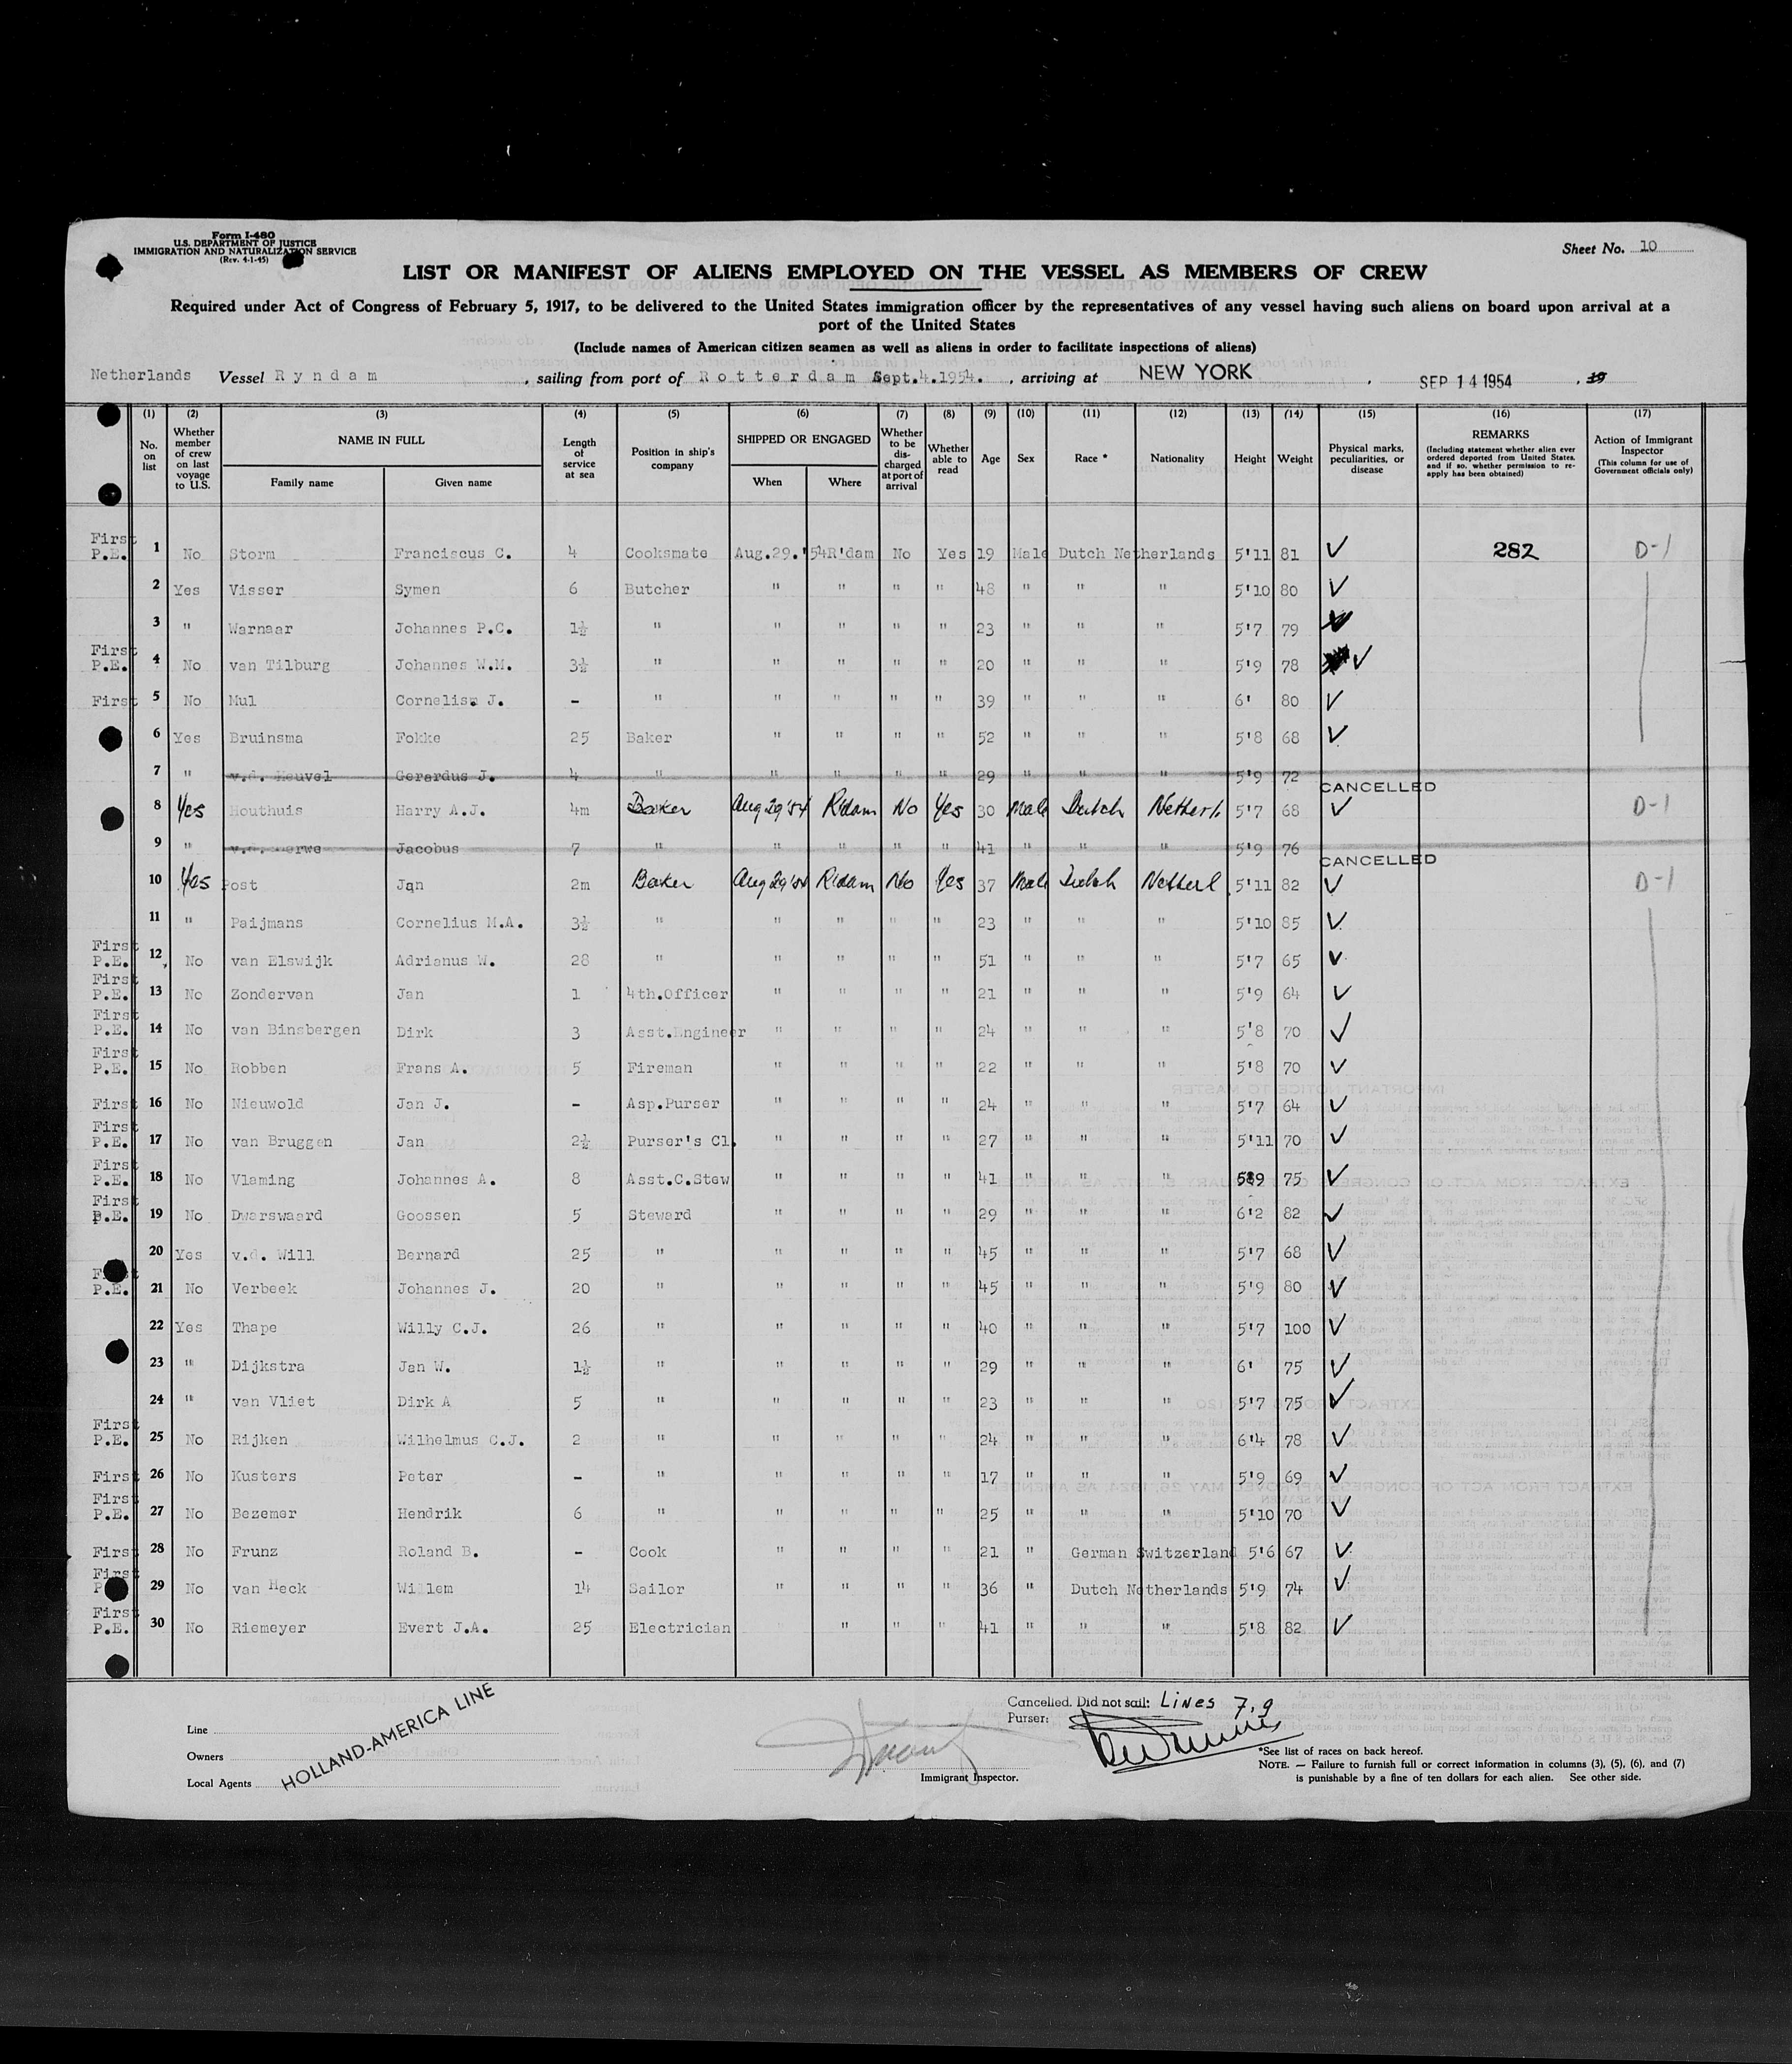 Form I-480
U.S. DEPARTMENT OF JUSTICE
IMMIGRATION AND NATURALIZATION SERVICE
(Rev. 4-1-45)
Sheet No. 10
LIST OR MANIFEST OF ALIENS EMPLOYED ON THE VESSEL AS MEMBERS OF CREW
Required under Act of Congress of February 5, 1917, to be delivered to the United States immigration officer by the representatives of any vessel having such aliens on board upon arrival at a
port of the United States
(Include names of American citizen seamen as well as aliens in order to facilitate inspections of aliens)
Netherlands Vessel Ryndam, sailing from port of Rotterdam Sept.4.1954., arriving at NEW YORK, SEP 14 1954, 19
(1) (2) (3) (4) (5) (6) (7) (8) (9) (10) (11) (12) (13) (14) (15) (16) (17)
No. on list
Whether member of crew on last voyage to U.S.
NAME IN FULL
Family name Given name
Length of service at sea
Position in ship's company
SHIPPED OR ENGAGED
When Where
Whether to be discharged at port of arrival
Whether able to read
Age Sex Race * Nationality Height Weight
Physical marks, peculiarities, or disease
REMARKS
(Including statement whether alien ever ordered deported from United States, and if so, whether permission to reapply has been obtained)
Action of Immigrant Inspector
(This column for use of Government officials only)
First P.E. 1 No Storm Franciscus C. 4 Cooksmate Aug.29.'54 R'dam No Yes 19 Male Dutch Netherlands 5'11 81 ✓ 282 D-1
2 Yes Visser Symen 6 Butcher " " " " 48 " " " 5'10 80 ✓
3 " Warnaar Johannes P.C. 1½ " " " " " 23 " " " 5'7 79 ✓
First P.E. 4 No van Tilburg Johannes W.M. 3½ " " " " " 20 " " " 5'9 78 ✓
First 5 No Mul Cornelis J. - " " " " " 39 " " " 6' 80 ✓
6 Yes Bruinsma Fokke 25 Baker " " " " 52 " " " 5'8 68 ✓
7 " v.d. Heuvel Gerardus J. 4 " " " " " 29 " " " 5'9 72 CANCELLED
8 Yes Houthuis Harry A.J. 4m Baker Aug 29'54 R'dam No Yes 30 Male Dutch Netherl. 5'7 68 ✓ D-1
9 " v.d. Merwe Jacobus 7 " " " " " 41 " " " 5'9 76 CANCELLED
10 Yes Post Jan 2m Baker Aug 29'54 R'dam No Yes 37 Male Dutch Netherl. 5'11 82 ✓ D-1
11 " Paijmans Cornelius M.A. 3½ " " " " " 23 " " " 5'10 85 ✓
First P.E. 12 No van Elswijk Adrianus W. 28 " " " " " 51 " " " 5'7 65 ✓
First P.E. 13 No Zondervan Jan 1 4th.Officer " " " " 21 " " " 5'9 64 ✓
First P.E. 14 No van Binsbergen Dirk 3 Asst.Engineer " " " " 24 " " " 5'8 70 ✓
First P.E. 15 No Robben Frans A. 5 Fireman " " " " 22 " " " 5'8 70 ✓
First 16 No Nieuwold Jan J. - Asp.Purser " " " " 24 " " " 5'7 64 ✓
First P.E. 17 No van Bruggen Jan 2½ Purser's Cl. " " " " 27 " " " 5'11 70 ✓
First P.E. 18 No Vlaming Johannes A. 8 Asst.C.Stew " " " " 41 " " " 5'9 75 ✓
First P.E. 19 No Dwarswaard Goossen 5 Steward " " " " 29 " " " 6'2 82 ✓
20 Yes v.d. Will Bernard 25 " " " " " 45 " " " 5'7 68 ✓
First P.E. 21 No Verbeek Johannes J. 20 " " " " " 45 " " " 5'9 80 ✓
22 Yes Thape Willy C.J. 26 " " " " " 40 " " " 5'7 100 ✓
23 " Dijkstra Jan W. 1½ " " " " " 29 " " " 6' 75 ✓
24 " van Vliet Dirk A 5 " " " " " 23 " " " 5'7 75 ✓
First P.E. 25 No Rijken Wilhelmus C.J. 2 " " " " " 24 " " " 6'4 78 ✓
First 26 No Kusters Peter - " " " " " 17 " " " 5'9 69 ✓
First P.E. 27 No Bezemer Hendrik 6 " " " " " 25 " " " 5'10 70 ✓
First 28 No Frunz Roland B. - Cook " " " " 21 " German Switzerland 5'6 67 ✓
First P.E. 29 No van Heck Willem 14 Sailor " " " " 36 " Dutch Netherlands 5'9 74 ✓
First P.E. 30 No Riemeyer Evert J.A. 25 Electrician " " " 41 " " " 5'8 82 ✓
Line
Owners
Local Agents
HOLLAND-AMERICA LINE
Immigrant Inspector.
Cancelled. Did not sail: Lines 7, 9
Purser:
*See list of races on back hereof.
NOTE. — Failure to furnish full or correct information in columns (3), (5), (6), and (7)
is punishable by a fine of ten dollars for each alien. See other side.